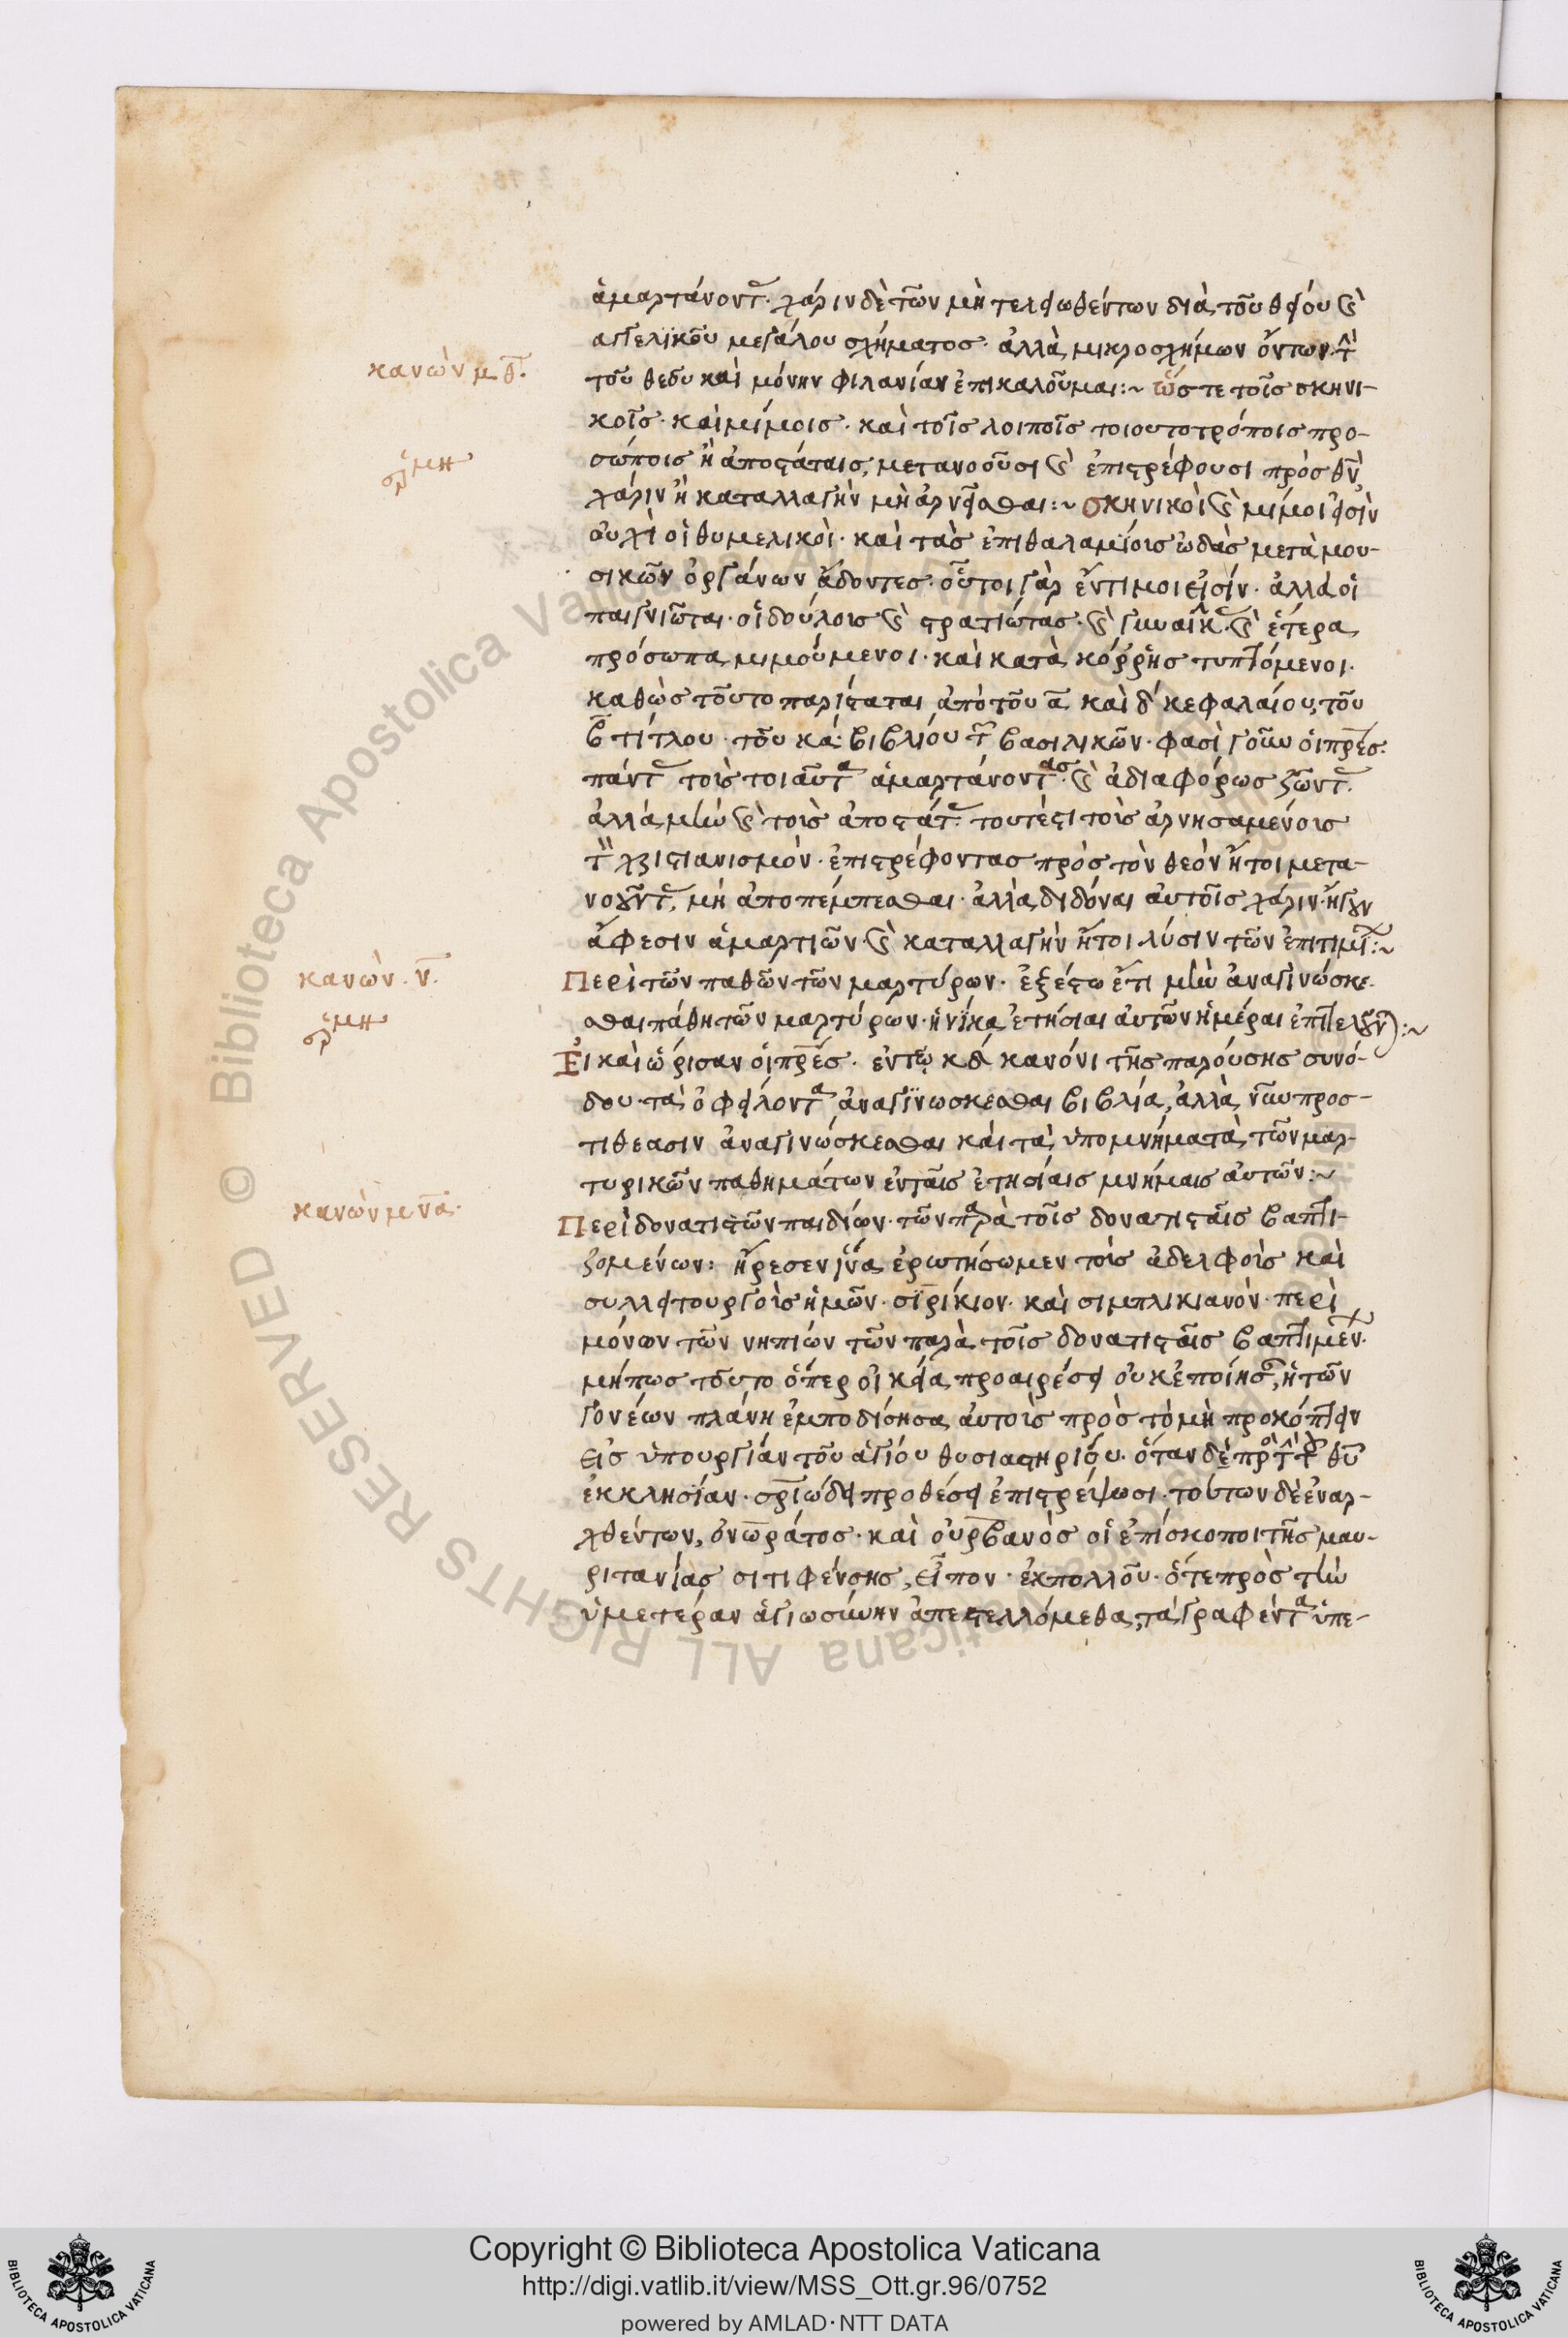 ἁμαρτάνοντ. χάριν δὲ τῶν μὴ τελειωθέντων διὰ τοῦ θείου καὶ
ἀγγελικοῦ μεγάλου σχήματος. ἀλλὰ μικροσχήμων ὄντων τὴν
κανὼν μθ.
τοῦ θεοῦ καὶ μόνην φιλανίαν ἐπικαλοῦμαι :~ ὥστε τοῖς σκηνι-
κοῖς. καὶ μίμοις. καὶ τοῖς λοιποῖς τοιουτοτρόποις προ-
ἑρμη
σώποις ἢ ἀποστάταις, μετανοοῦσι καὶ ἐπιστρέφουσι πρὸς θν
χάριν ἢ καταλλαγὴν μὴ ἀρνεῖσθαι :~ σκηνικοὶ καὶ μίμοι εἰσὶν
οὐχὶ οἱ θυμελικοὶ. καὶ τὰς ἐπιθαλαμίοις ὠδὰς μετὰ μου-
σικῶν ὀργάνων ἄδοντες. οὗτοι γὰρ ἔντιμοι εἰσίν. ἀλλὰ οἱ
παιγνιῶται. οἱ δούλοις καὶ στρατιώτας. καὶ γυναῖκ. καὶ ἕτερα
πρόσωπα μιμούμενοι. καὶ κατὰ κόρρης τυπτόμενοι.
καθὼς τοῦτο παρίσταται ἀπὸ τοῦ α καὶ δ κεφαλαίου, τοῦ
β τίτλου. τοῦ κα βιβλίου τ βασιλικῶν. φασὶ γοῦν οἱ πρες.
πάντ τοὺς τοιαῦτα ἁμαρτάνοντας. καὶ ἀδιαφόρως ζῶντ.
ἀλλὰ μὴν καὶ τοὺς ἀποστάτ. τουτέστι τοὺς ἀρνησαμένοις
τὸν χριστιανισμὸν. ἐπιστρέφοντας πρὸς τὸν θεὸν ἤτοι μετα-
νοοῦντ, μὴ ἀποπέμπεσθαι. ἀλλὰ διδόναι αὐτοῖς χάριν. ἤγουν
ἄφεσιν ἁμαρτιῶν. καὶ καταλλαγὴν ἤτοι λύσιν τῶν ἐπιτιμί :~
κανὼν. ν.
Περὶ τῶν παθῶν τῶν μαρτύρων. ἐξέστω ἔτι μὴν ἀναγινώσκε-
ἑρμη
σθαι πάθη τῶν μαρτύρων. ἡνίκα ἐτήσιαι αὐτῶν ἡμέραι ἐπιτελοῦν :~
Εἰ καὶ ὥρισαν οἱ πρες. ἐν τῷ κδ κανόνι τῆς παρούσης συνό-
δου. τὰ ὀφείλοντα ἀναγινωσκέσθαι βιβλία, ἀλλὰ νῦν προσ-
τιθεασιν ἀναγινώσκεσθαι καὶ τὰ ὑπομνήματα τῶν μαρ-
τυρικῶν παθημάτων ἐν ταῖς ἐτησίαις μνήμαις αὐτῶν :~
κανὼν να.
Περὶ δονατιστῶν παιδίων. τῶν παρὰ τοῖς δονατισταῖς βαπτι-
ζομένων : ἤρεσεν ἵνα ἐρωτήσωμεν τοὺς ἀδελφοὺς καὶ
συλλειτουργοὺς ἡμῶν. σιρίκιον. καὶ σιμπλικιανὸν. περὶ
μόνων τῶν νηπίων τῶν παρὰ τοῖς δονατισταῖς βαπτιμεν.
μήπως τοῦτο ὅπερ οἰκεία προαιρέσει οὐκ ἐποίησ, ἡ τῶν
γονέων πλάνη ἐμποδίσησα αὐτοὺς πρὸς τὸ μὴ προκόπτειν
εἰς ὑπουργίαν τοῦ ἁγίου θυσιαστηρίου. ὅταν δὲ πρὸς τὴν τοῦ θυ
ἐκκλησίαν. σριώδει προθέσει ἐπιστρέψωσι. τούτων δὲ ἐναρ-
χθέντων, ὀνωράτος. καὶ οὐρβανὸς οἱ ἐπίσκοποι τῆς μαυ-
ριτανίας σιτιφένσης, εἶπον. ἐκ πολλοῦ. ὅτε πρὸς τὴν
ὑμετέραν ἁγιωσύνην ἀπεστελλόμεθα, τὰ γραφέντα ὑπε-
Copyright © Biblioteca Apostolica Vaticana
http://digi.vatlib.it/view/MSS_Ott.gr.96/0752
powered by AMLAD·NTT DATA